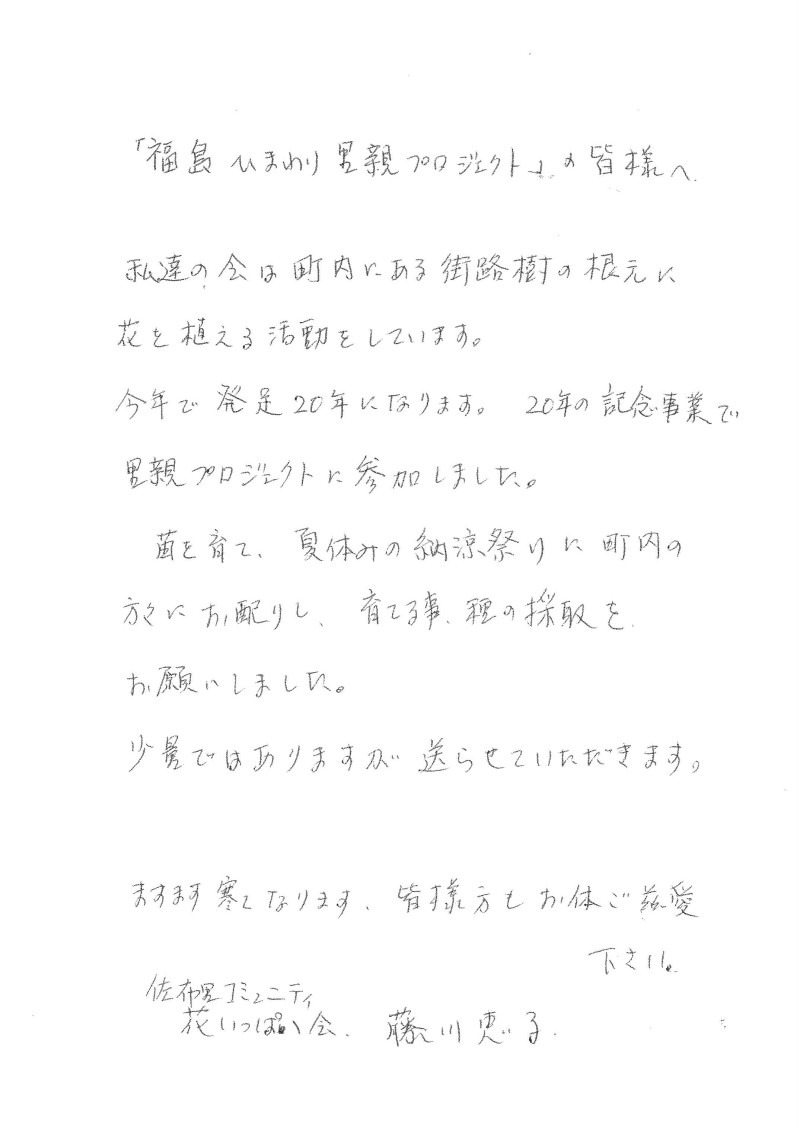 「福島ひまわり里親プロジェクト」の皆様へ
私達の会は町内にある街路樹の根元に
花を植える活動をしています。
今年で発足20年になります。 20年の記念事業で
里親プロジェクトに参加しました。
苗を育て、夏休みの納涼祭りに町内の
方々にお配りし、育てる事、種の採取を
お願いしました。
少量ではありますが送らせていただきます。
ますます寒くなります、皆様方もお体ご慈愛
下さい。
佐布里コミュニティ
花いっぱい会、藤川恵子